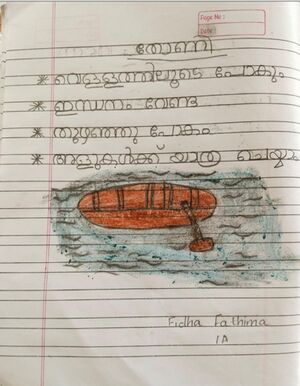 Page No :
Date :
തോണി
* വെള്ളത്തിലൂടെ പോകും
* ഇന്ധനം വേണ്ട
* തുഴഞ്ഞു പോകം
* അളുകൾക്ക് യാത്ര ചെയ്യാം
Fidha Fathima
1A